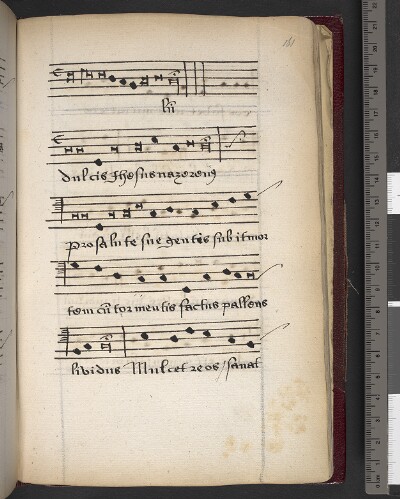 lii
dulcis Jhesus nazarenus
pro salute sue gentis subit mor
tem cū tor mentis factus pallens
lividus Mulcet reos / sanat